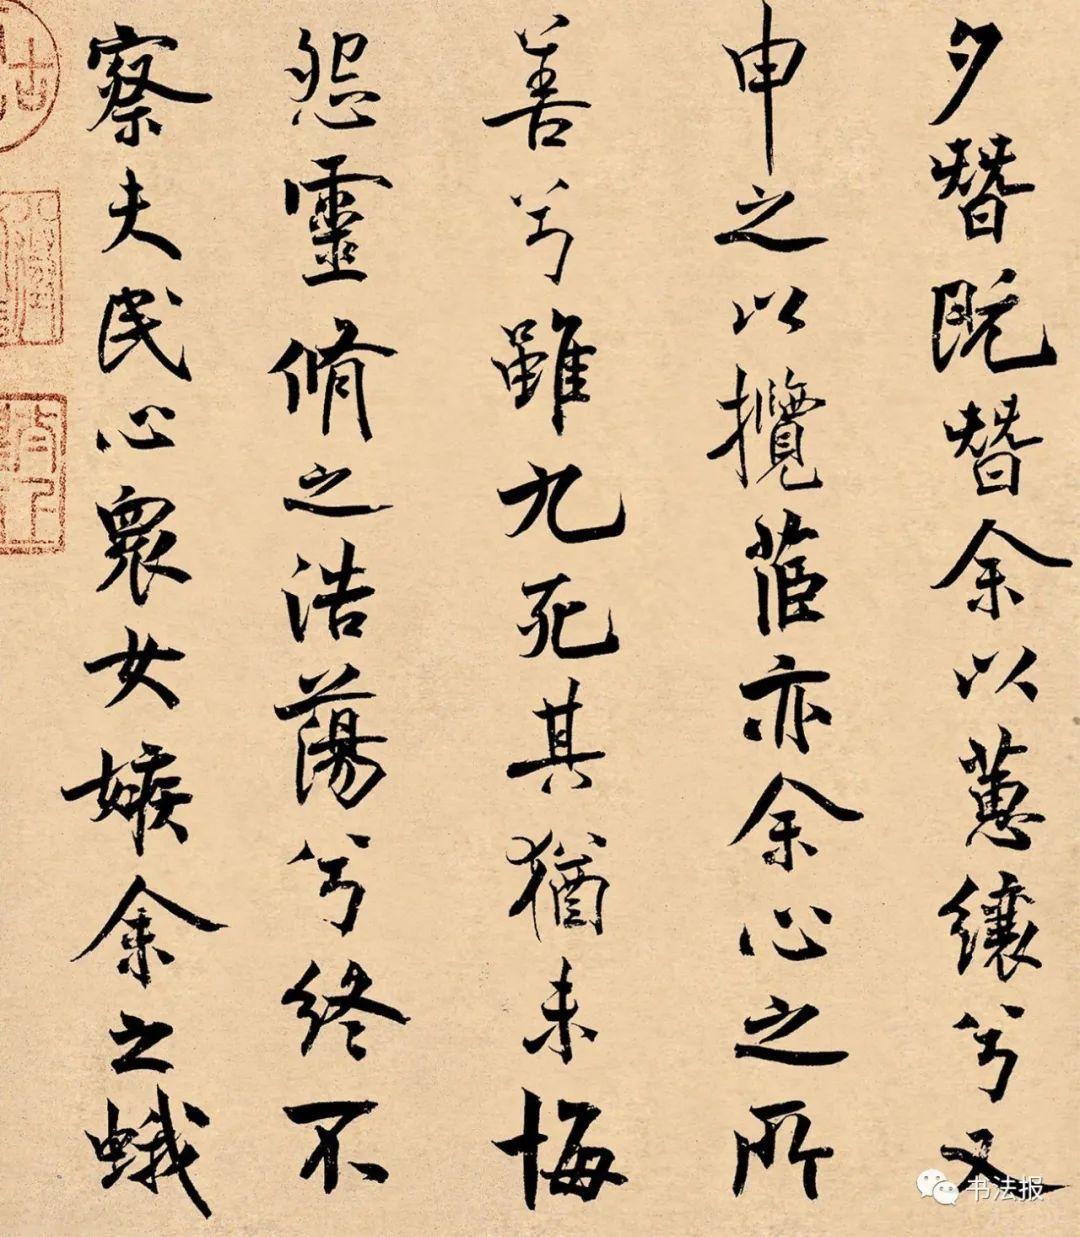 夕替既替余以蕙纕兮又
申之以攬茝亦余心之所
善兮雖九死其猶未悔
怨靈脩之浩蕩兮終不
察夫民心衆女嫉余之蛾
书法报